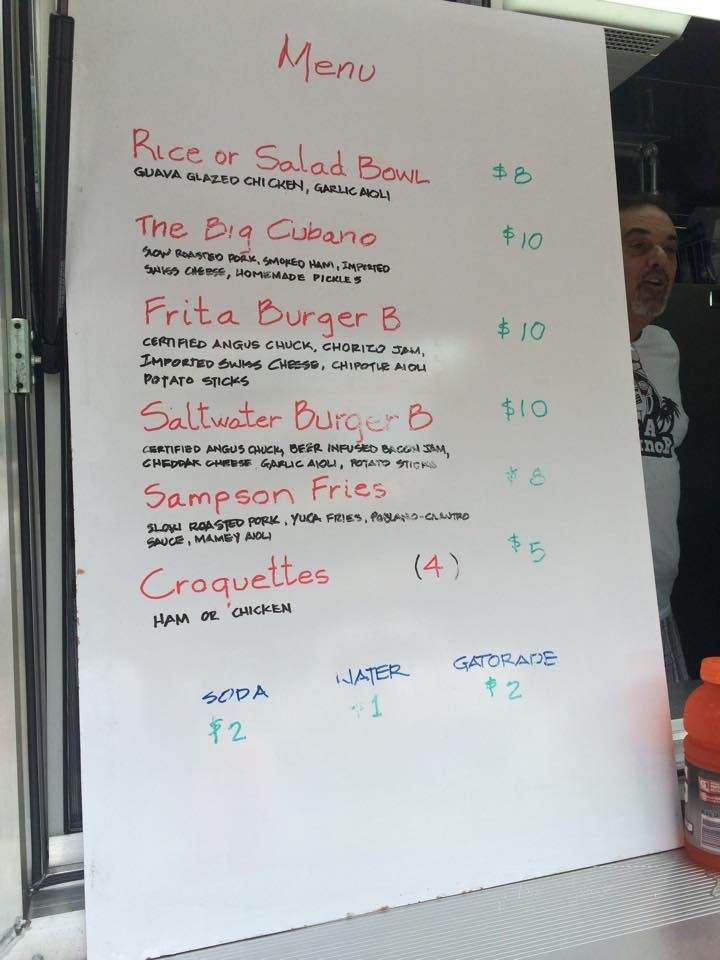 Menu
Rice or Salad Bowl $8
GUAVA GLAZED CHICKEN, GARLIC AIOLI
The Big Cubano $10
SLOW ROASTED PORK, SMOKED HAM, IMPORTED
SWISS CHEESE, HOMEMADE PICKLES
Frita Burger B $10
CERTIFIED ANGUS CHUCK, CHORIZO JAM,
IMPORTED SWISS CHEESE, CHIPOTLE AIOLI
POTATO STICKS
Saltwater Burger B $10
CERTIFIED ANGUS CHUCK, BEER INFUSED BACON JAM,
CHEDDAR CHEESE GARLIC AIOLI, POTATO STICKS
Sampson Fries $8
SLOW ROASTED PORK, YUCA FRIES, POBLANO-CILANTRO
SAUCE, MAMEY AIOLI
Croquettes (4) $5
HAM OR CHICKEN
SODA WATER GATORADE
$2 $1 $2